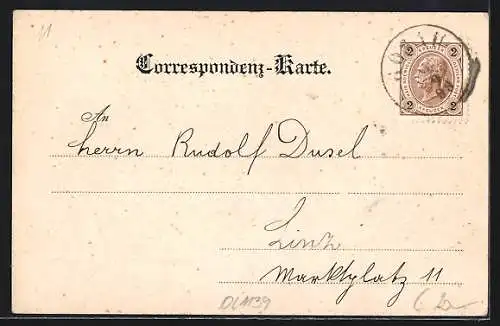 11
Correspondenz-Karte.
2 2
2 2
An
Herrn Rudolf Dusel
Linz
Marktplatz 11